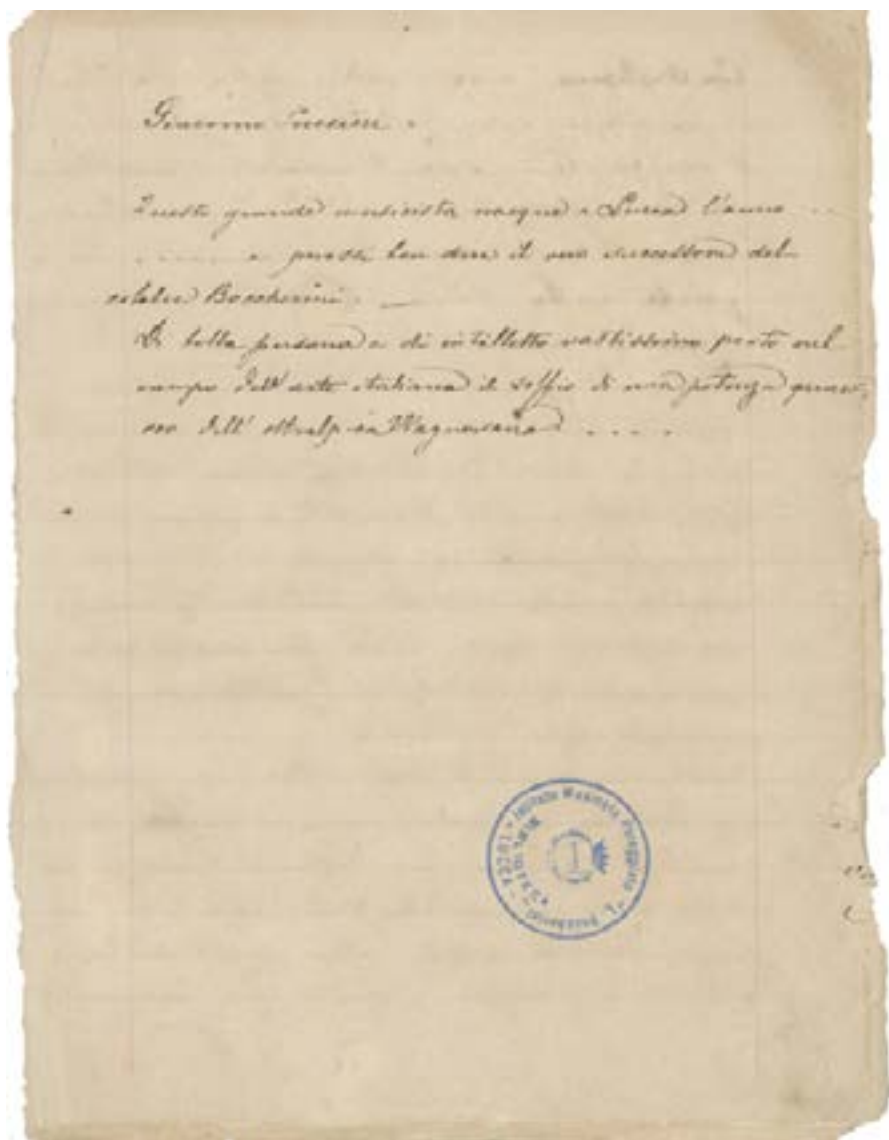 Giacomo Puccini.
Questo grande musicista nacque a Lucca l'anno . . .
. . . . . . e puossi ben dire il vero successore del
celebre Boccherini. —
Di bella persona e di intelletto vastissimo portò nel
campo dell'arte italiana il soffio di una potenza
dell' oltralpina Wagneriana . . . .
Istituto Musicale Pareggiato
"L. Boccherini" - LUCCA -